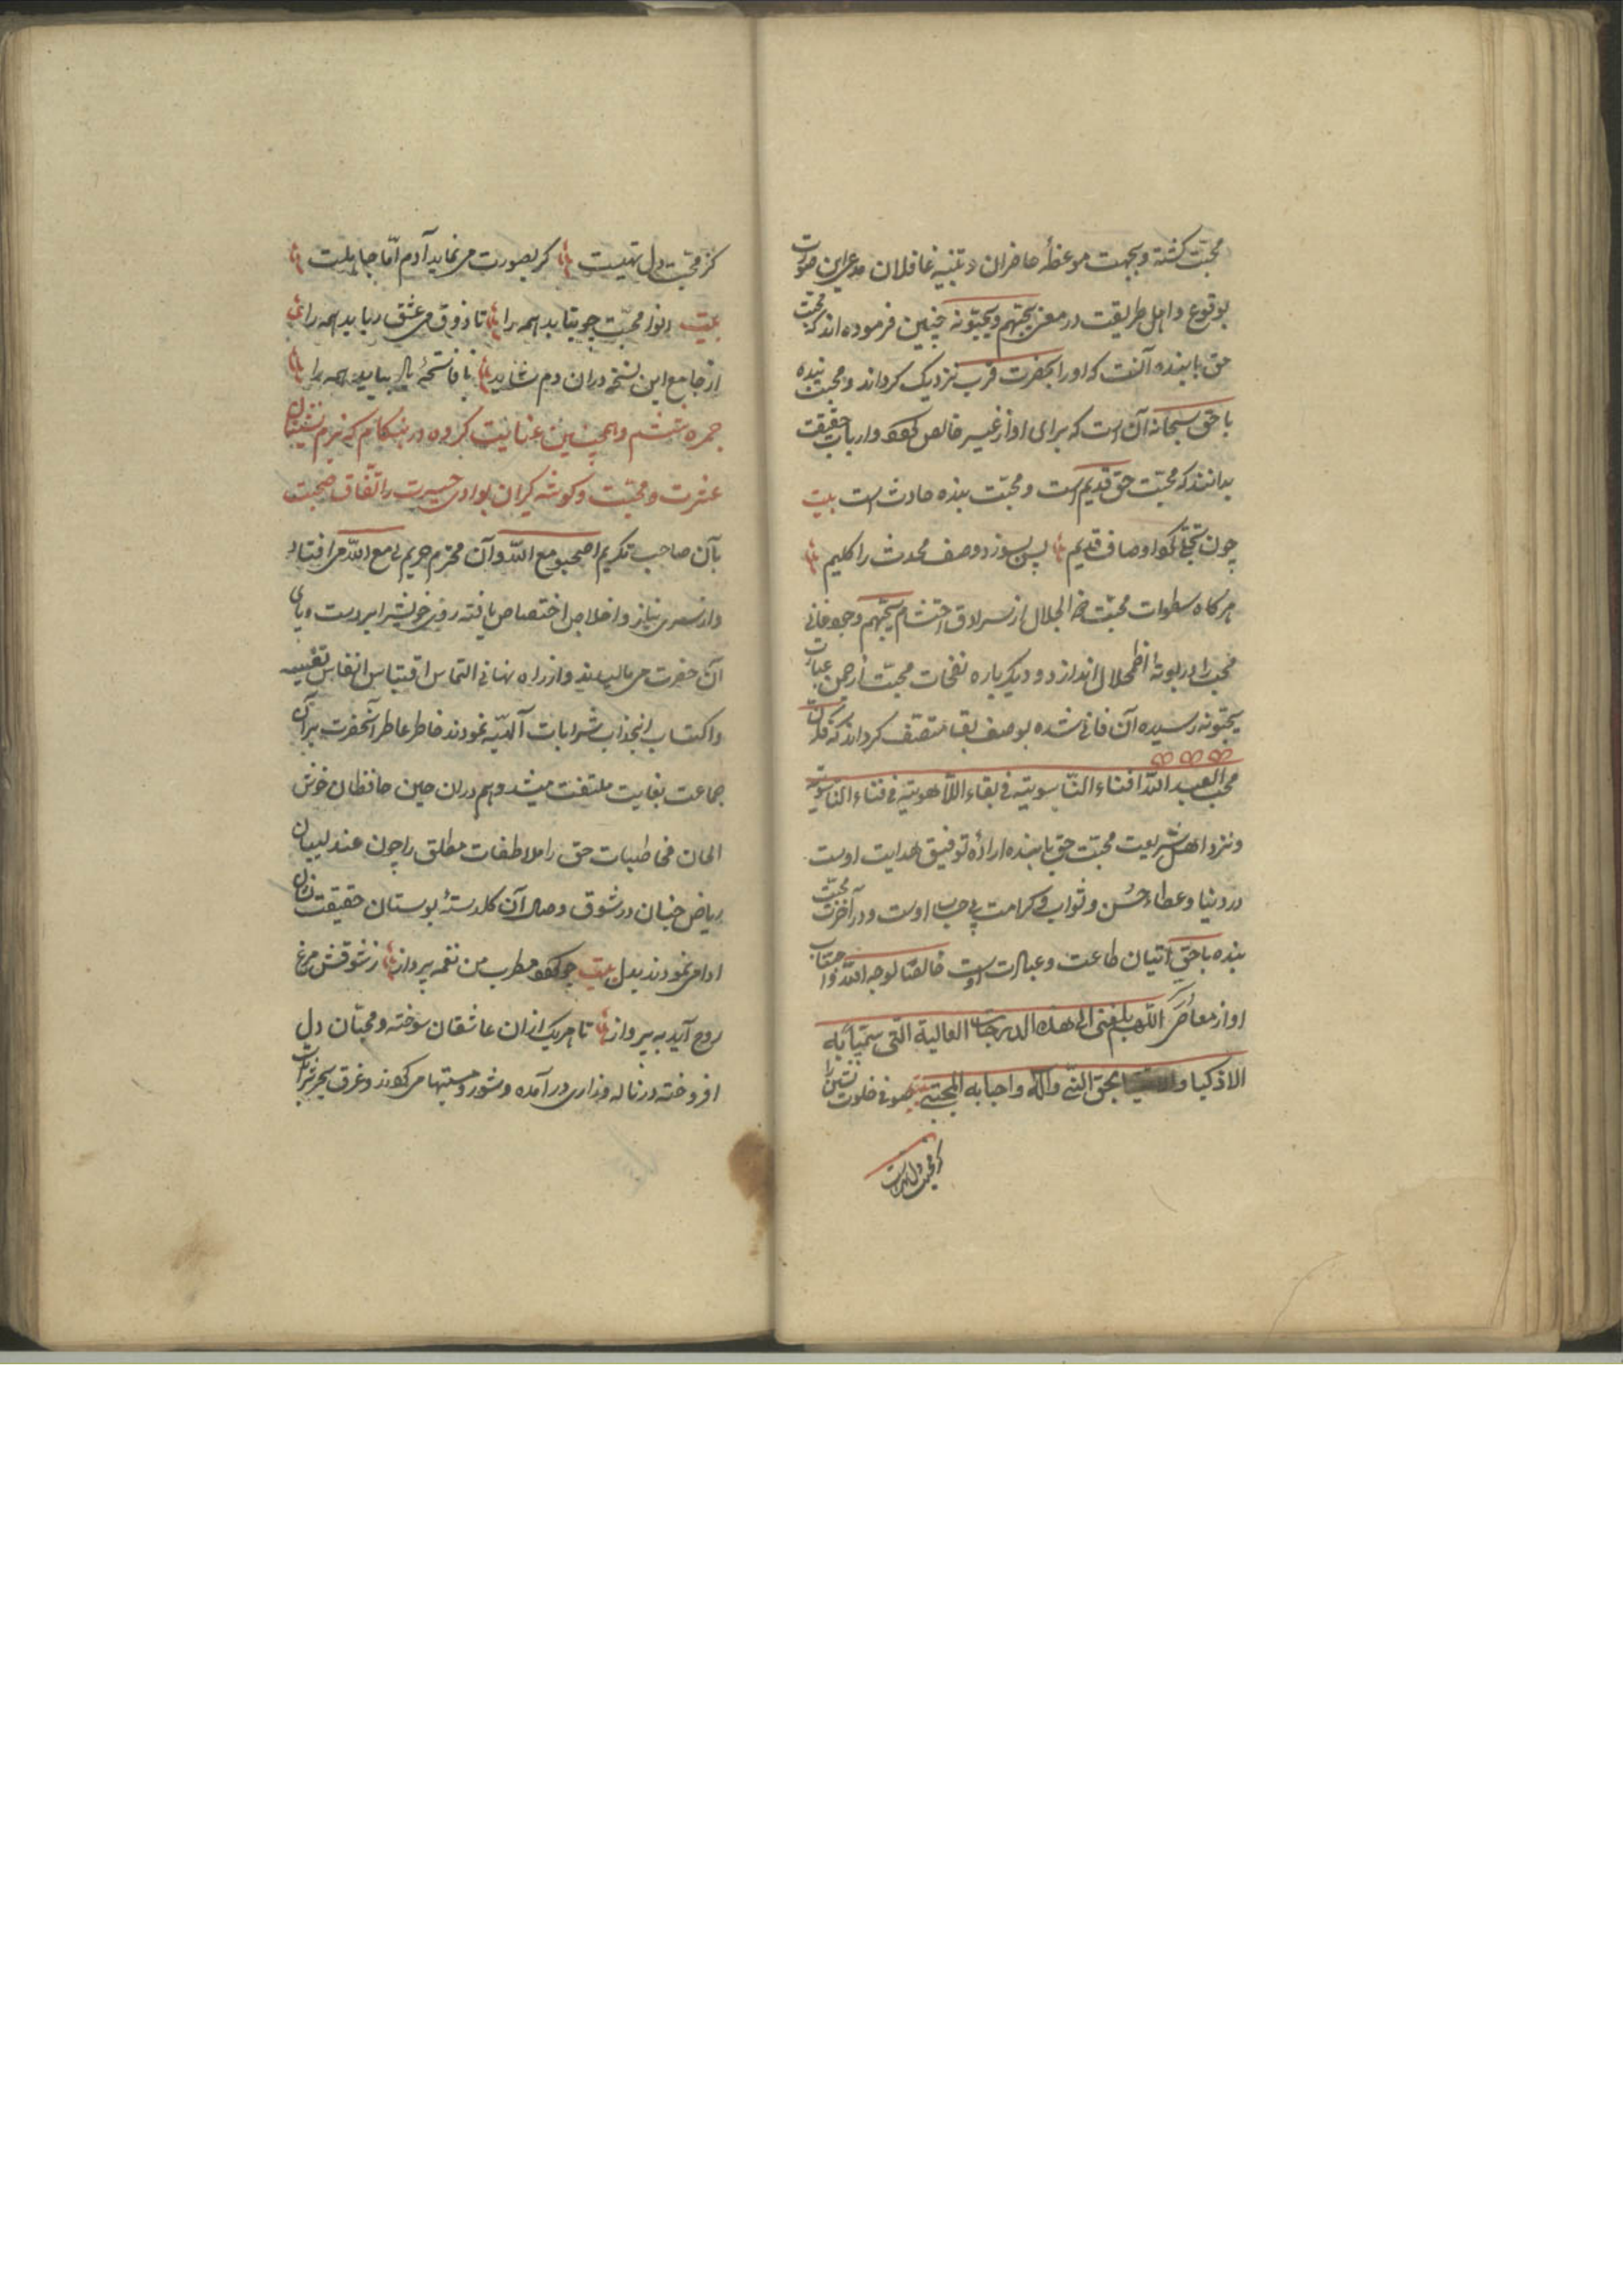 محبت کشته وبجهت موعظهٔ حاضران وتنبیه غافلان مدعی این صورت
بوقوع واهل طریقت در معنی یحبّهم ویحبّونه چنین فرموده اند که محبّت
حق با بنده آنست که او را بحضرت قرب نزدیک کرداند و محبت بنده
با حق سبحانه آن است که برای او از غیر خالص کردد وارباب حقیقت
بدانند که محبّت حق قدیم است و محبّت بنده حادث است بیت
چون تجلّی کرد اوصاف قدیم پس بسوزد وصف محدث را کلیم
هرکاه سطوات محبّت ذو الجلال از سرادق احتشام یحبّهم وجود فانی
محب را در بوتهٔ اضمحلال اندازد و دیکر باره نفحات محبّت از چمن عبارت
یحبّونه رسیده آن فانی شده بوصف بقا متّصف کرداند که
محب العبد الله افناء النّاسوتیّة فی بقاء اللّاهوتیّة فی فناء الناسوتیة
ونزد اهل شریعت محبّت حق با بنده ارادهٔ توفیق هدایت اوست
در دنیا وعطاء حُسن وثواب وکرامت بی حساب اوست ودر آخرت محبّت
بنده با حق اتیان طاعت وعبادت اوست خالصًا لوجه الله واجتناب
او از معاصی اللّهم بلّغنی الی هذه الدرجات العالیة الّتی سمّیا به
الاذکیا و بحق النّبی وآله واحبابه المجتبی بیت صوفی خلوت نشین را
کز محبّت دل تهیست
کز محبّت دل تهیست کر بصورت می نماید آدم امّا جاهلیست
بیت انوار محبّت چو بتابد همه را تا ذوق می عشق رباید همه را
از جامع این نسخه دران دم شاید تا فاتحهٔ یاد بیاید همه را
جمره ششم وهمچنین عنایت کروه در هنکام که بزم نشینان
عشرت ومحبّت وکوشه کیران بوادی حسیرت را اتّفاق صحبت
بآن صاحب تکریم اصحبو مع الله وآن محرم حریم لی مع الله می افتاد
واز سر نیاز واخلاص اختصاص یافته روی خویش را بر دست وپای
آن حضرت می مالیدند واز راه نهانی التماس اقتباس انفاس نفیسه
واکتساب انجذاب شرابات آلهیّه نمودند خاطر عاطر آنحضرت بر آن
جماعت بغایت ملتفت میشد وهم دران حین حافظان خوش
الحان مخاطبات حق را ملاطفات مطلق را چون عندلیبان
ریاض جنان در شوق وصال آن کلدستهٔ بوستان حقیقت نشان
ادا می نمودند بدل بیت چو کفت مطرب من نغمه پرداز ز شوقش مرغ
روح آید به پرواز تا هریک ازان عاشقان سوخته ومحبّان دل
افروخته در ناله وزاری در آمده وشور ومستیها می کردند وغرق بحر شراب